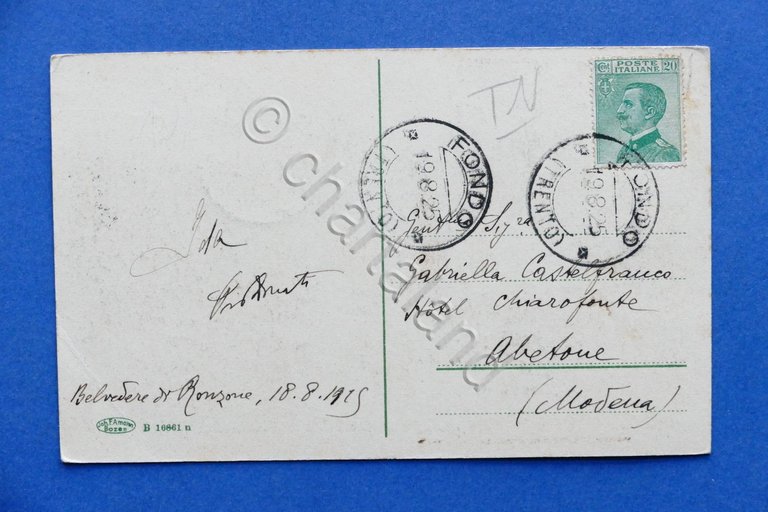 TN
POSTE
ITALIANE
Cent. 20
FONDO
(TRENTO)
19.8.25
FONDO
(TRENTO)
19.8.25
Ida
Gent.ma Sig.ra
Gabriella Castelfranco
Hôtel Chiarofonte
Abetone
(Modena)
Belvedere di Ronzone, 18.8.1925
Joh. F. Amonn
Bozen
B 16861 n
© chartaland